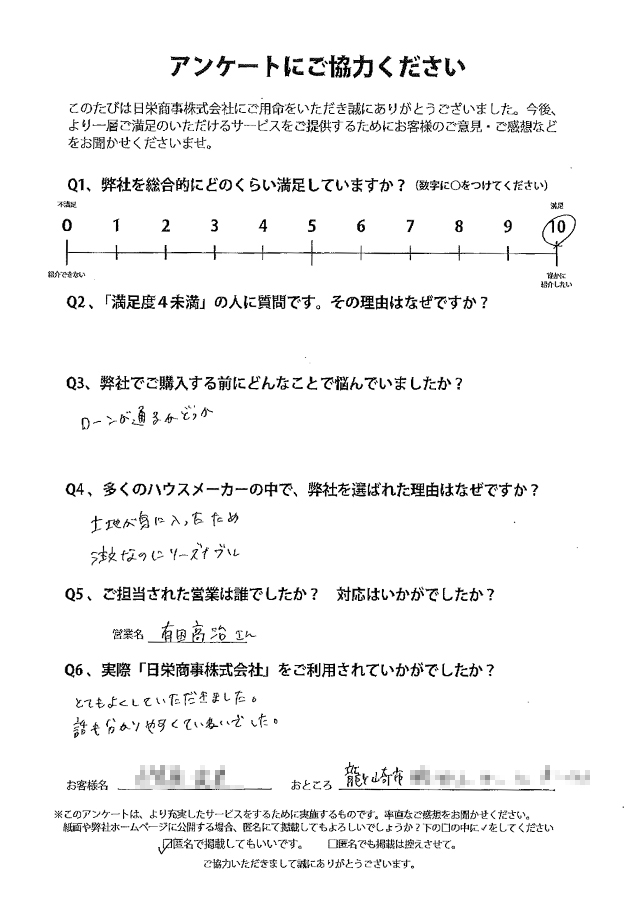 アンケートにご協力ください
このたびは日栄商事株式会社にご用命をいただき誠にありがとうございました。今後、
より一層ご満足のいただけるサービスをご提供するためにお客様のご意見・ご感想など
をお聞かせくださいませ。
Q1、弊社を総合的にどのくらい満足していますか？（数字に○をつけてください）
不満足 満足
0 1 2 3 4 5 6 7 8 9 10
紹介できない 確かに
紹介したい
Q2、「満足度４未満」の人に質問です。その理由はなぜですか？
Q3、弊社でご購入する前にどんなことで悩んでいましたか？
ローンが通るかどうか
Q4、多くのハウスメーカーの中で、弊社を選ばれた理由はなぜですか？
土地が気に入ったため
注文なのにリーズナブル
Q5、ご担当された営業は誰でしたか？　対応はいかがでしたか？
営業名 有田高治さん
Q6、実際「日栄商事株式会社」をご利用されていかがでしたか？
とてもよくしていただきました。
話も分かりやすくていねいでした。
お客様名 おところ 龍ヶ崎市
※このアンケートは、より充実したサービスをするために実施するものです。率直なご感想をお聞かせください。
紙面や弊社ホームページに公開する場合、匿名にて掲載してもよろしいでしょうか？下の□の中に✓をしてください
☑匿名で掲載してもいいです。 □匿名でも掲載は控えさせて。
ご協力いただきまして誠にありがとうございます。